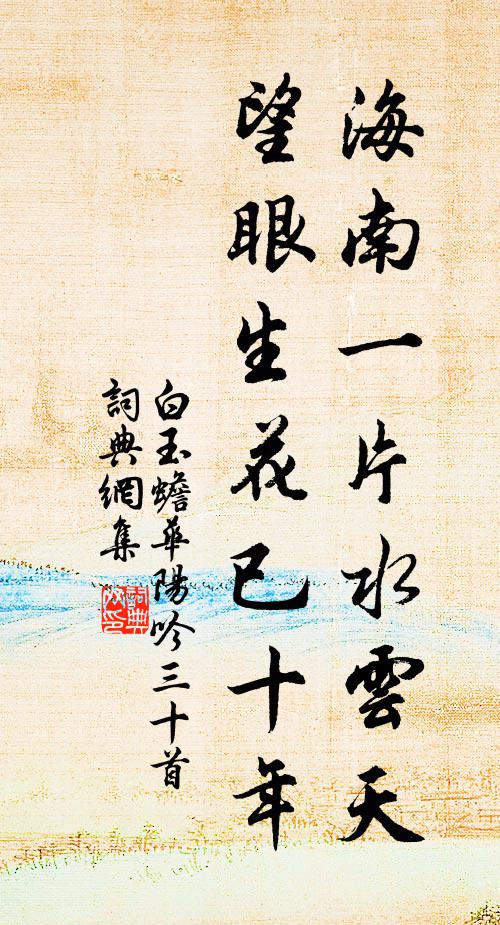 海南一片水雲天
望眼生花已十年
白玉蟾華陽吟三十首
詞典網集